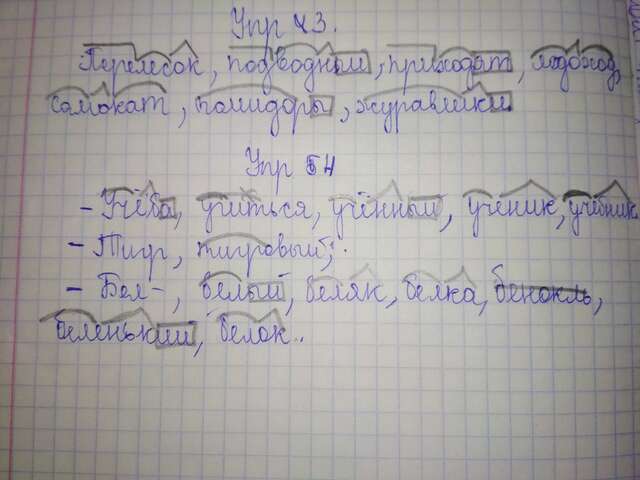 Упр 43.
Перелесок, подводный, приходят, ледоход,
самокат, помидоры, журавлики
Упр 54
- Учёба, учиться, учённый, ученик, учебник
- Тигр, тигровый,
- Бел-, белый, беляк, белка, бенокль,
беленький, белок..